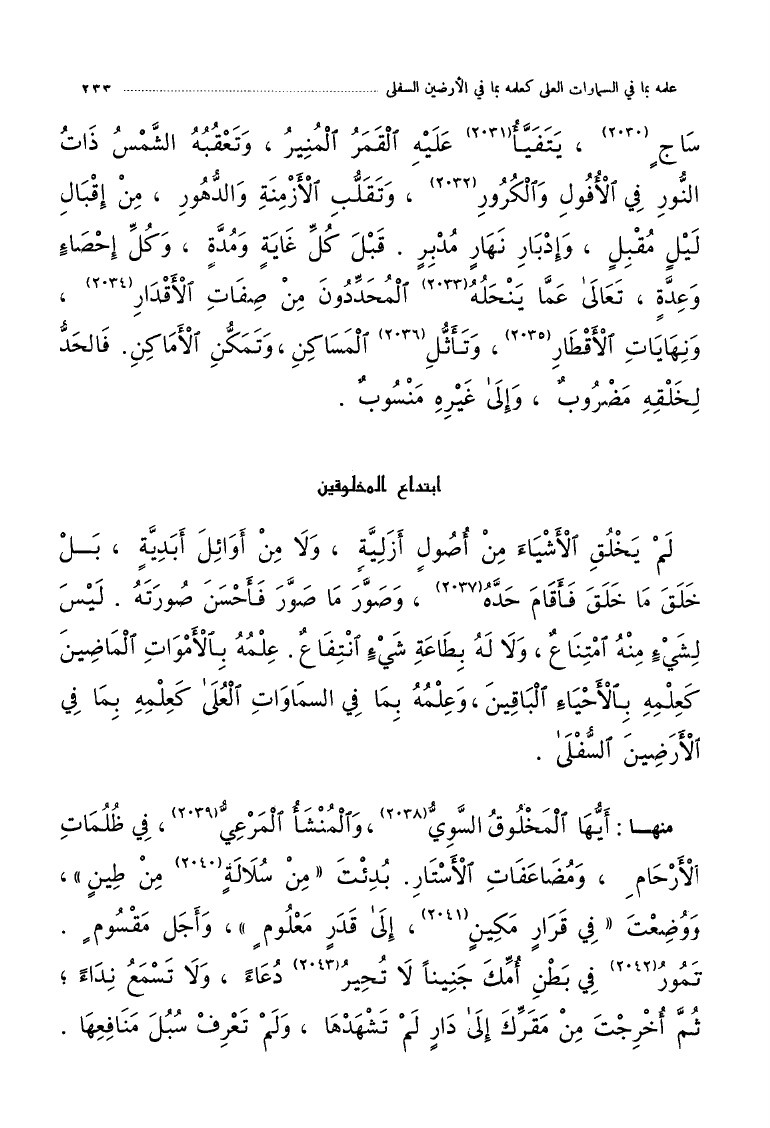 علمه بما في السماوات العلى كعلمه بما في الأرضين السفلى ........................................ ٢٣٣
سَاجٍ(٢٠٣٠) ، يَتَفَيَّأُ(٢٠٣١) عَلَيْهِ ٱلْقَمَرُ ٱلْمُنِيرُ ، وَتَعْقُبُهُ الشَّمْسُ ذَاتُ
النُّورِ فِي ٱلْأُفُولِ وَٱلْكُرُورِ(٢٠٣٢) ، وَتَقَلُّبِ ٱلْأَزْمِنَةِ وَالدُّهُورِ ، مِنْ إِقْبَالِ
لَيْلٍ مُقْبِلٍ ، وَإِدْبَارِ نَهَارٍ مُدْبِرٍ . قَبْلَ كُلِّ غَايَةٍ وَمُدَّةٍ ، وَكُلِّ إِحْصَاءٍ
وَعِدَّةٍ ، تَعَالَىٰ عَمَّا يَنْحَلُهُ(٢٠٣٣) ٱلْمُحَدِّدُونَ مِنْ صِفَاتِ ٱلْأَقْدَارِ(٢٠٣٤) ،
وَنِهَايَاتِ ٱلْأَقْطَارِ(٢٠٣٥) ، وَتَأَثُّلِ(٢٠٣٦) ٱلْمَسَاكِنِ ، وَتَمَكُّنِ ٱلْأَمَاكِنِ . فَالحَدُّ
لِخَلْقِهِ مَضْرُوبٌ ، وَإِلَىٰ غَيْرِهِ مَنْسُوبٌ .
ابتداع المخلوقين
لَمْ يَخْلُقِ ٱلْأَشْيَاءَ مِنْ أُصُولٍ أَزَلِيَّةٍ ، وَلَا مِنْ أَوَائِلَ أَبَدِيَّةٍ ، بَــلْ
خَلَقَ مَا خَلَقَ فَأَقَامَ حَدَّهُ(٢٠٣٧) ، وَصَوَّرَ مَا صَوَّرَ فَأَحْسَنَ صُورَتَهُ . لَيْسَ
لِشَيْءٍ مِنْهُ ٱمْتِنَاعٌ ، وَلَا لَهُ بِطَاعَةِ شَيْءٍ ٱنْتِفَاعٌ . عِلْمُهُ بِٱلْأَمْوَاتِ ٱلْمَاضِينَ
كَعِلْمِهِ بِٱلْأَحْيَاءِ ٱلْبَاقِينَ ، وَعِلْمُهُ بِمَا فِي السمَاوَاتِ ٱلْعُلَىٰ كَعِلْمِهِ بِمَا فِي
ٱلْأَرَضِينَ السُّفْلَىٰ .
منهـا : أَيُّهَا ٱلْمَخْلُوقُ السَّوِيُّ(٢٠٣٨) ، وَٱلْمُنْشَأُ ٱلْمَرْعِيُّ(٢٠٣٩) ، فِي ظُلُمَاتِ
ٱلْأَرْحَامِ ، وَمُضَاعَفَاتِ ٱلْأَسْتَارِ . بُدِئْتَ « مِنْ سُلَالَةٍ(٢٠٤٠) مِنْ طِينٍ » ،
وَوُضِعْتَ « فِي قَرَارٍ مَكِينٍ(٢٠٤١) ، إِلَىٰ قَدَرٍ مَعْلُومٍ » ، وَأَجَلٍ مَقْسُومٍ .
تَمُورُ(٢٠٤٢) فِي بَطْنِ أُمِّكَ جَنِيناً لَا تُحِيرُ(٢٠٤٣) دُعَاءً ، وَلَا تَسْمَعُ نِدَاءً ؛
ثُمَّ أُخْرِجْتَ مِنْ مَقَرِّكَ إِلَىٰ دَارٍ لَمْ تَشْهَدْهَا ، وَلَمْ تَعْرِفْ سُبُلَ مَنَافِعِهَا .